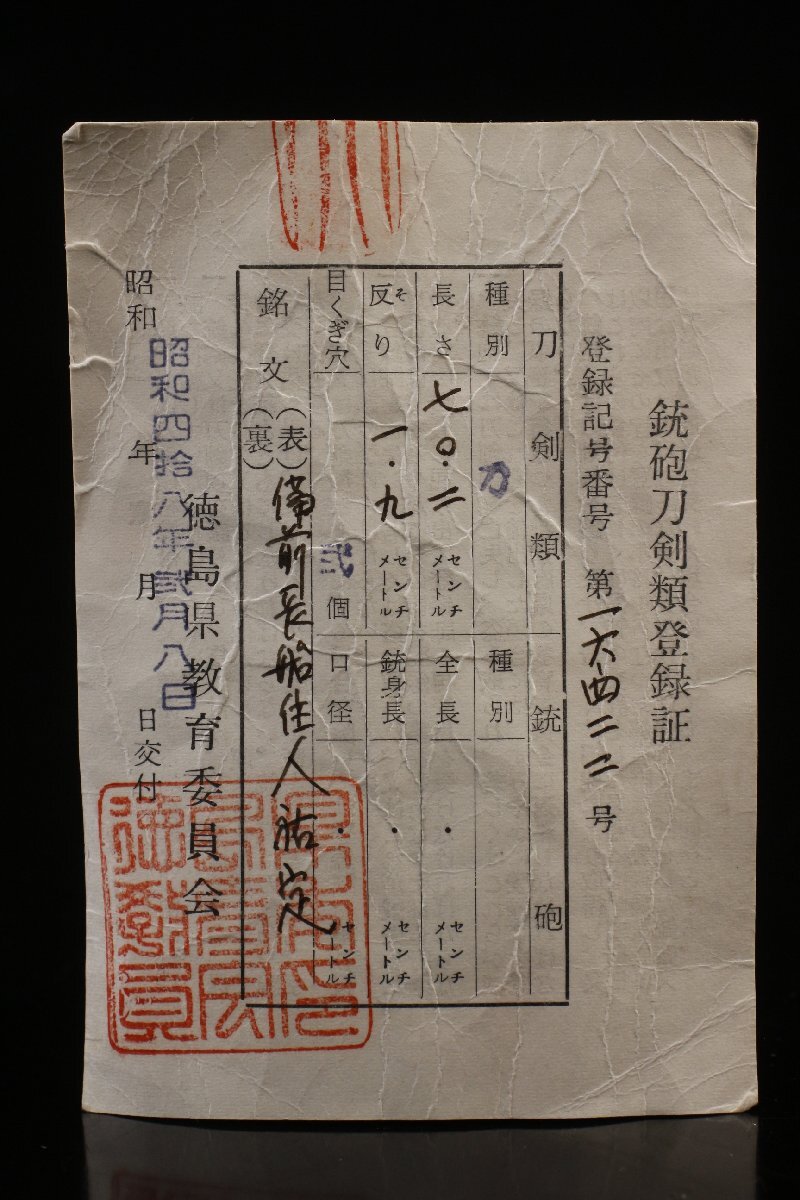 銃砲刀剣類登録証
登録記号番号 第一六四二二号
刀剣類
銃砲
種別 刀
種別
長さ 七〇・二 センチメートル
全長 ・ センチメートル
反り そ 一・九 センチメートル
銃身長 ・ センチメートル
目くぎ穴 弐 個
口径 ・ センチメートル
銘文 (表) 備前長船住人祐定
(裏)
徳島県教育委員会
昭和四拾八年弐月八日
昭和 年 月 日交付